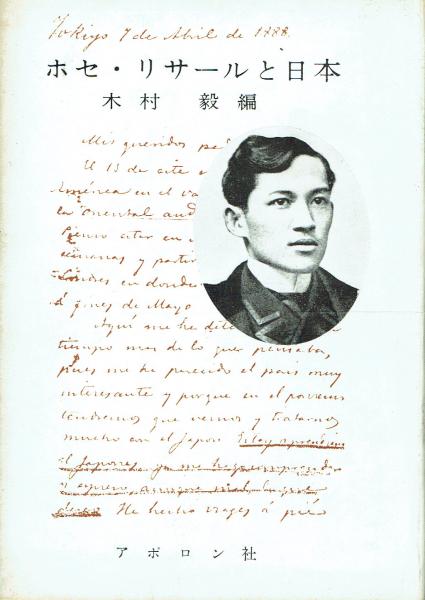 Tokiyo 7 de Abril de 1888.
ホセ・リサールと日本
木村 毅編
Mis queridos
El 13 de este
América en el
la Oriental and
en
semanas y
Londres en donde
á fines de Mayo
Aquí me he
tiempo mas de lo que pensaba,
pues me ha parecido el pais muy
interesante y porque en el porvenir
tendremos que vernos y tratarnos
mucho con el Japon. Estoy aprendiendo
el Japones, ya me hago
He hecho viages á pié
アポロン社